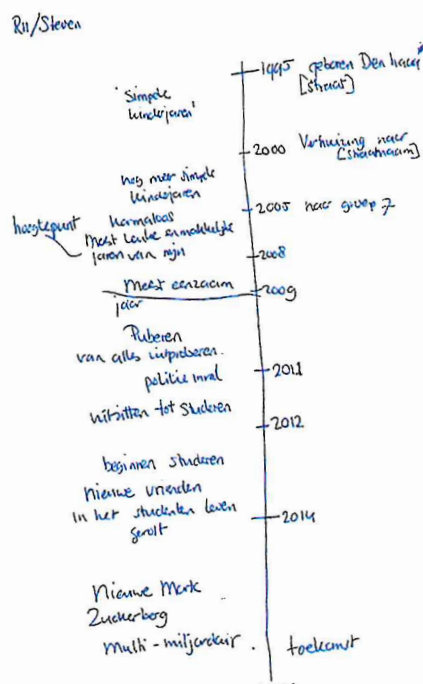 R11/Steven
1995 geboren Den haag
[straat]
'simpele
kinderjaren'
2000 Verhuizing naar
[straatnaam]
nog meer simpele
kinderjaren
2005 naar groep 7
hoogtepunt
harmaloos
Meest leuke en makkelijke
jaren van mijn
2008
Meest eenzaam
jaar
2009
Puberen
van alles uitproberen.
politie inval
2011
uitzitten tot studeren
2012
beginnen studeren
nieuwe vrienden
In het studenten leven
gerolt
2014
Nieuwe Mark
Zuckerberg
multi-miljardair
toekomst